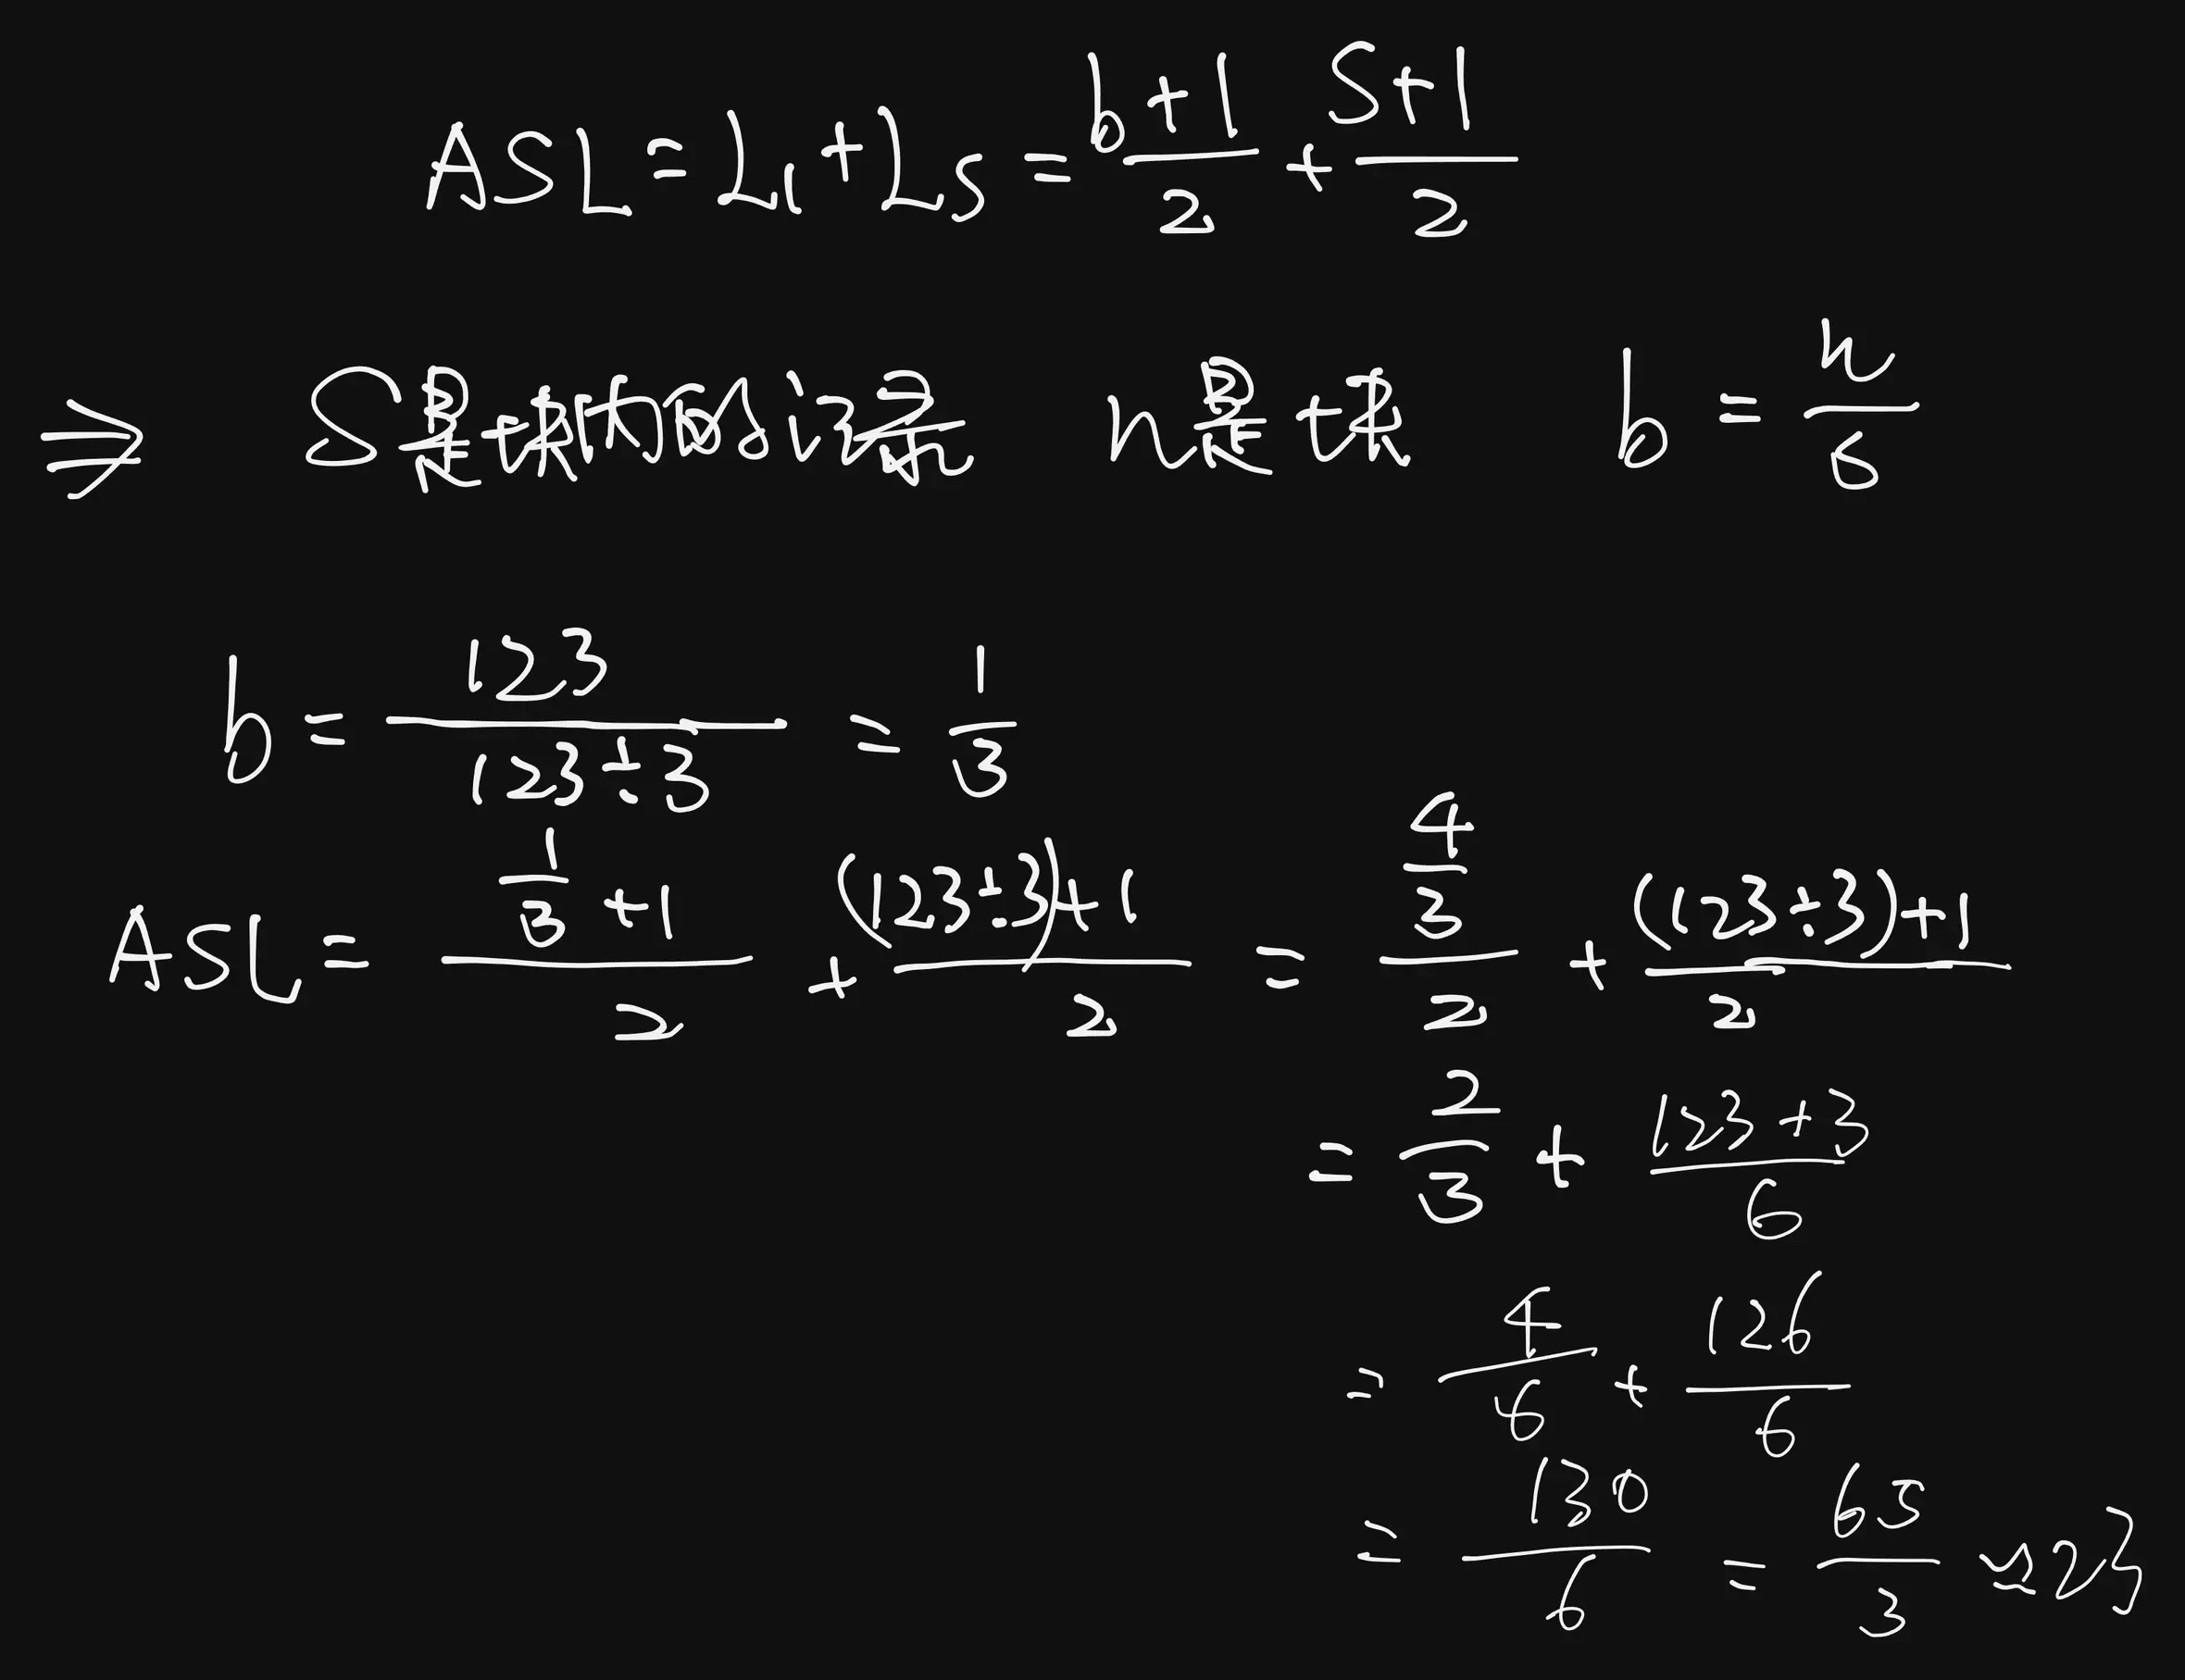 ASL = L₁ + Lₛ = (b+1)/2 + (S+1)/2
⇒ S是块内的记录 n是块 b = n/s
b = 123/(123÷3) = 1/3
ASL = (1/3 + 1)/2 + ((123÷3)+1)/2 = (4/3)/2 + ((123÷3)+1)/2
= 2/3 + (123+3)/6
= 4/6 + 126/6
= 130/6 = 65/3 ≈ 23